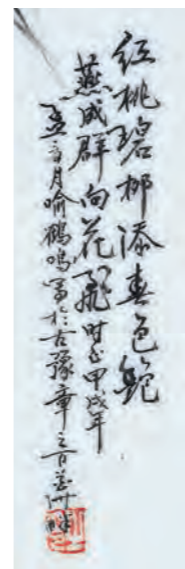 红桃碧柳添春色鲍
燕成群向花飞时在甲戌年
孟言月喻鹤鸣写於古豫章之百花洲畔